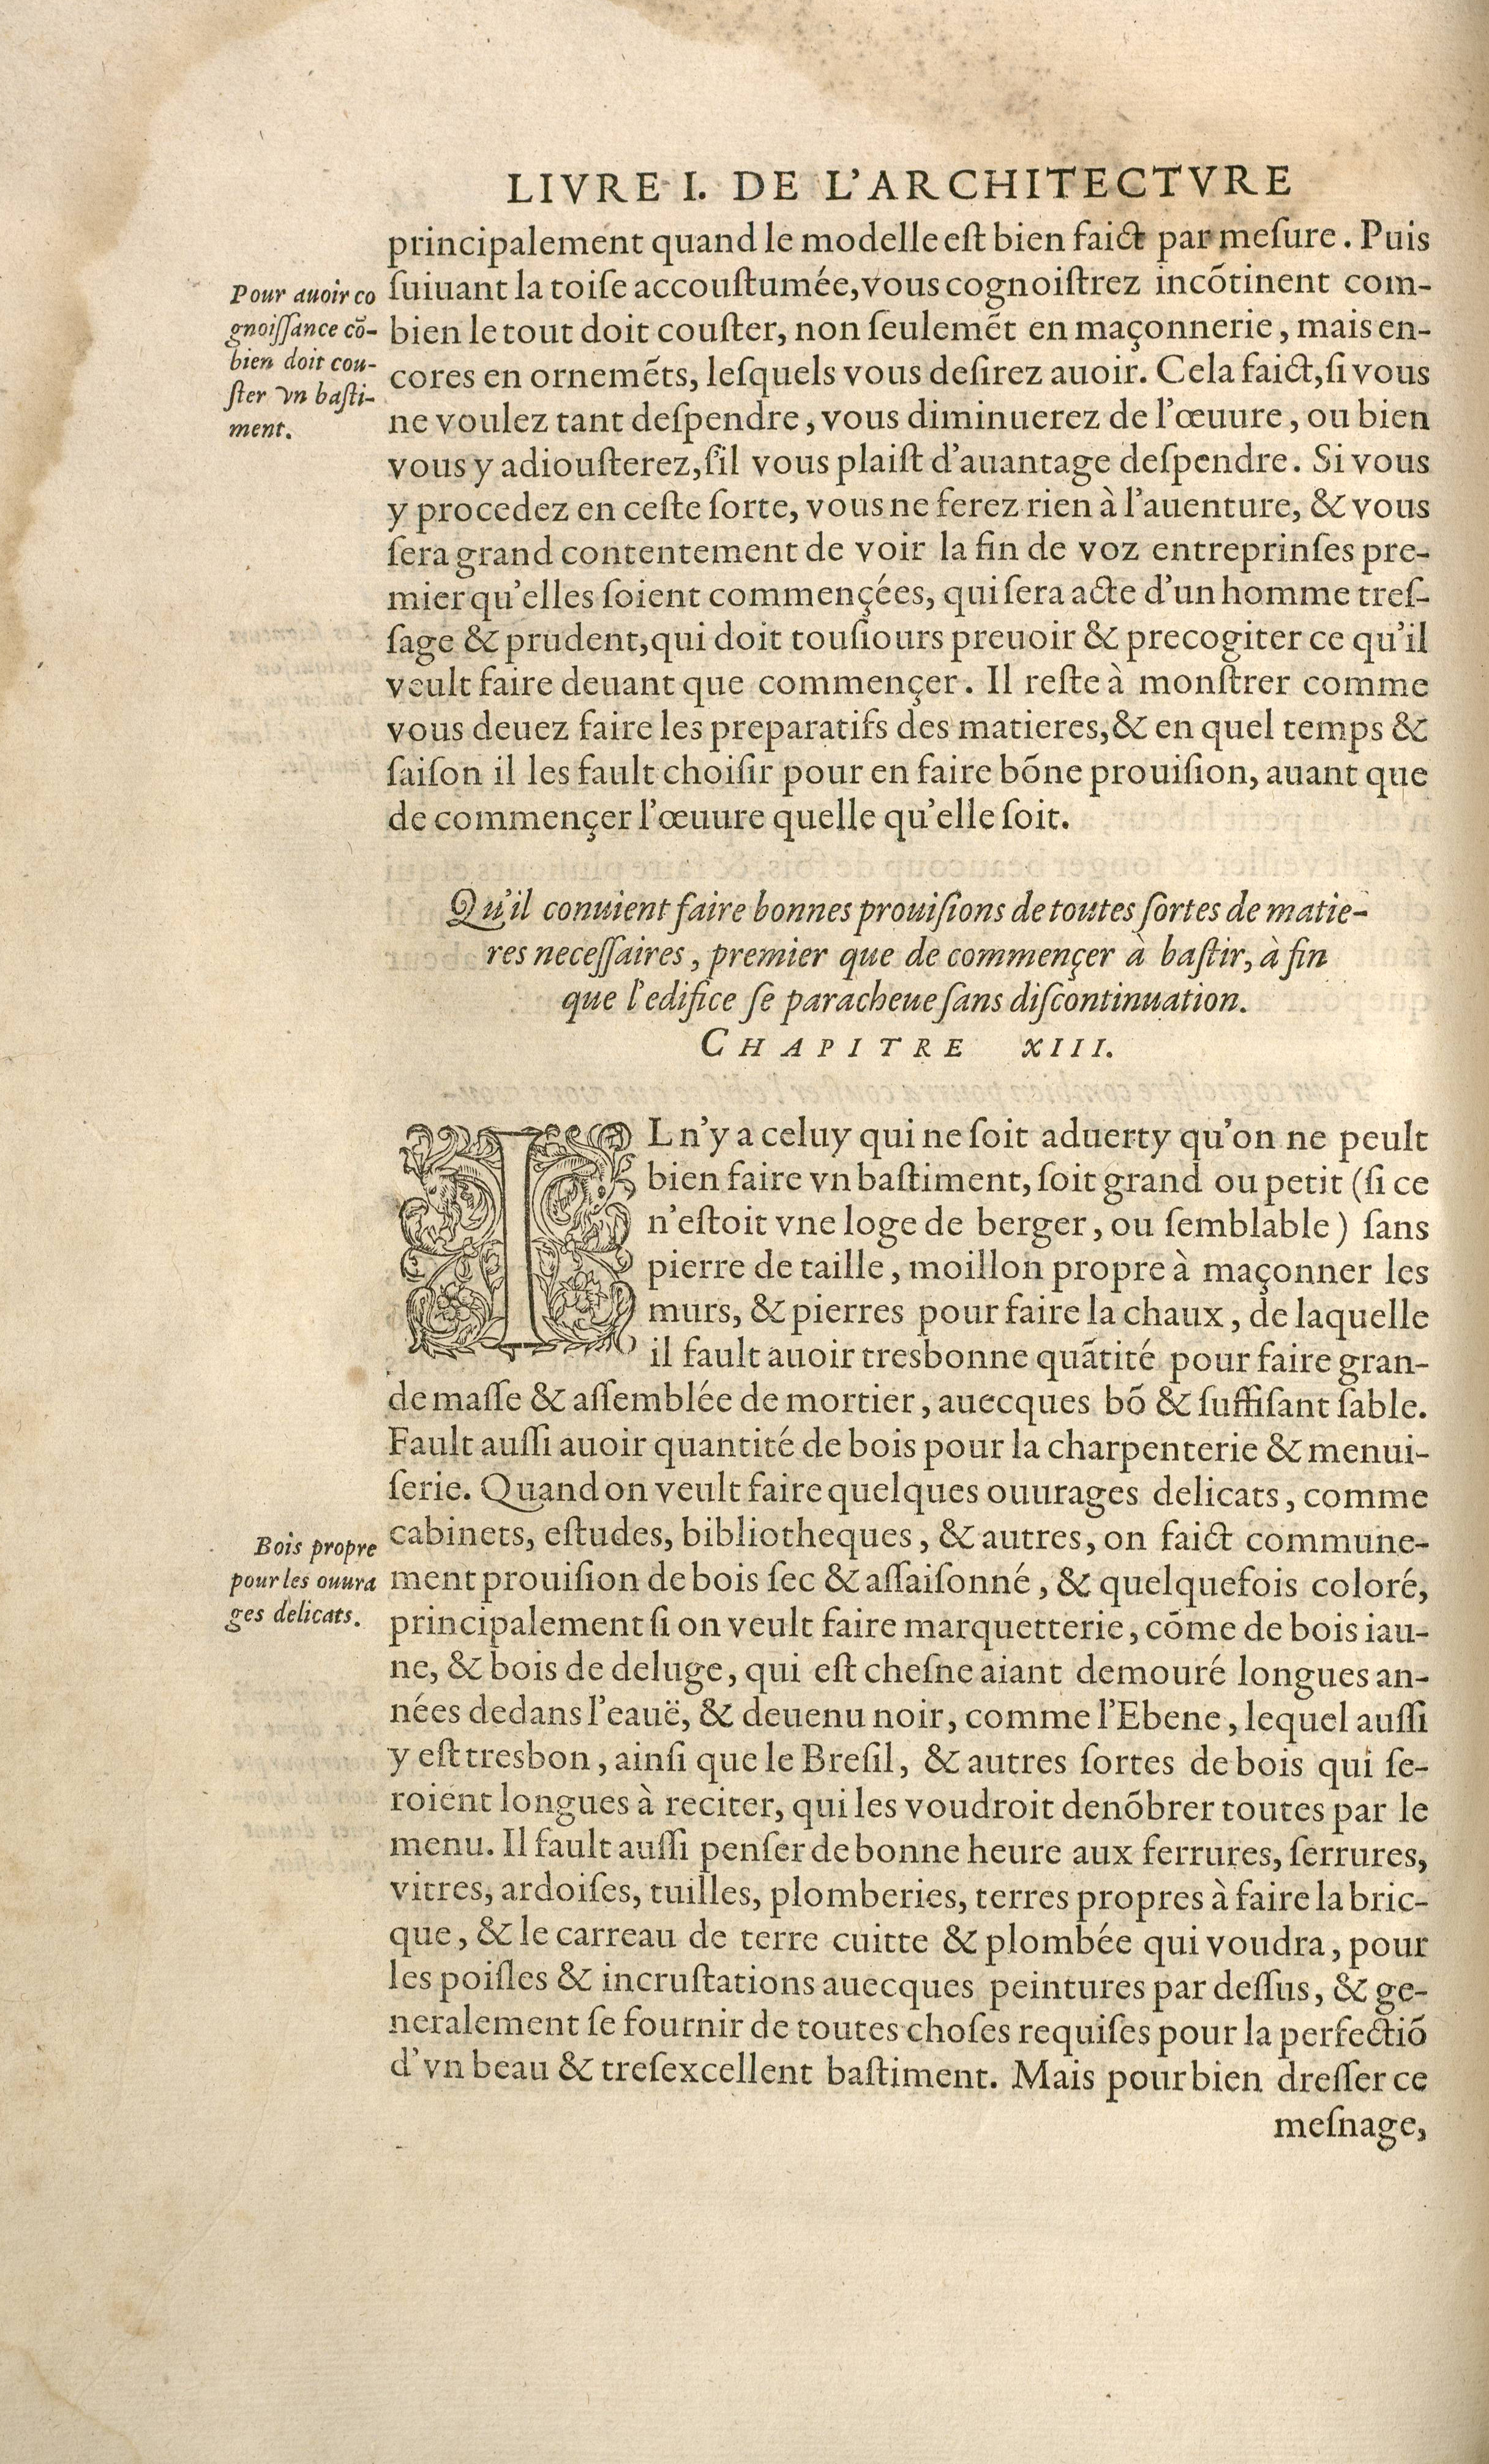 LIVRE I. DE L'ARCHITECTVRE
principalement quand le modelle eſt bien faict par meſure. Puis
ſuiuant la toiſe accouſtumée, vous cognoiſtrez incõtinent com-
bien le tout doit couſter, non ſeulemẽt en maçonnerie, mais en-
cores en ornemẽts, leſquels vous deſirez auoir. Cela faict, ſi vous
ne voulez tant deſpendre, vous diminuerez de l'œuure, ou bien
vous y adiouſterez, ſ'il vous plaiſt d'auantage deſpendre. Si vous
y procedez en ceſte ſorte, vous ne ferez rien à l'auenture, & vous
ſera grand contentement de voir la fin de voz entreprinſes pre-
mier qu'elles ſoient commençées, qui ſera acte d'un homme treſ-
ſage & prudent, qui doit touſiours preuoir & precogiter ce qu'il
veult faire deuant que commençer. Il reſte à monſtrer comme
vous deuez faire les preparatifs des matieres, & en quel temps &
ſaiſon il les fault choiſir pour en faire bõne prouiſion, auant que
de commençer l'œuure quelle qu'elle ſoit.
Pour auoir co
gnoiſſance cõ-
bien doit cou-
ſter vn baſti-
ment.
Qu'il conuient faire bonnes prouiſions de toutes ſortes de matie-
res neceſſaires, premier que de commençer à baſtir, à fin
que l'edifice ſe paracheue ſans diſcontinuation.
CHAPITRE XIII.
IL n'y a celuy qui ne ſoit aduerty qu'on ne peult
bien faire vn baſtiment, ſoit grand ou petit (ſi ce
n'eſtoit vne loge de berger, ou ſemblable) ſans
pierre de taille, moillon propre à maçonner les
murs, & pierres pour faire la chaux, de laquelle
il fault auoir tresbonne quãtité pour faire gran-
de maſſe & aſſemblée de mortier, auecques bõ & ſuffiſant ſable.
Fault auſſi auoir quantité de bois pour la charpenterie & menui-
ſerie. Quand on veult faire quelques ouurages delicats, comme
cabinets, eſtudes, bibliotheques, & autres, on faict commune-
ment prouiſion de bois ſec & aſſaiſonné, & quelquefois coloré,
principalement ſi on veult faire marquetterie, cõme de bois iau-
ne, & bois de deluge, qui eſt cheſne aiant demouré longues an-
nées dedans l'eauë, & deuenu noir, comme l'Ebene, lequel auſſi
y eſt tresbon, ainſi que le Breſil, & autres ſortes de bois qui ſe-
roient longues à reciter, qui les voudroit denõbrer toutes par le
menu. Il fault auſſi penſer de bonne heure aux ferrures, ſerrures,
vitres, ardoiſes, tuilles, plomberies, terres propres à faire la bric-
que, & le carreau de terre cuitte & plombée qui voudra, pour
les poiſles & incruſtations auecques peintures par deſſus, & ge-
neralement ſe fournir de toutes choſes requiſes pour la perfectiõ
d'vn beau & treſexcellent baſtiment. Mais pour bien dreſſer ce
meſnage,
Bois propre
pour les ouura
ges delicats.